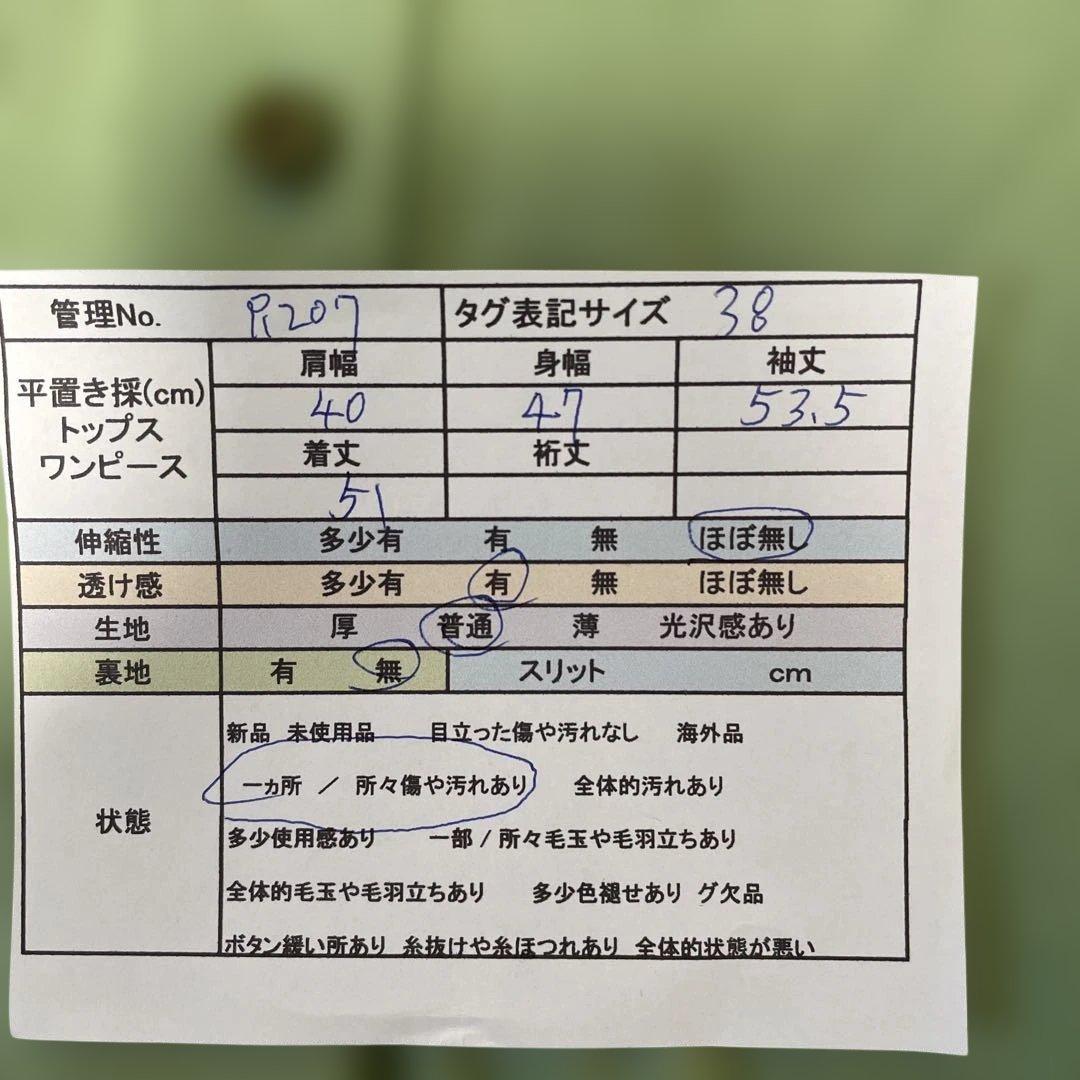 管理No. P1207 タグ表記サイズ 38
平置き採(cm) トップス ワンピース
肩幅 身幅 袖丈
40 47 53.5
着丈 裄丈
51
伸縮性 多少有 有 無 ほぼ無し
透け感 多少有 有 無 ほぼ無し
生地 厚 普通 薄 光沢感あり
裏地 有 無 スリット cm
状態
新品 未使用品 目立った傷や汚れなし 海外品
一ヵ所 / 所々傷や汚れあり 全体的汚れあり
多少使用感あり 一部 / 所々毛玉や毛羽立ちあり
全体的毛玉や毛羽立ちあり 多少色褪せあり グ欠品
ボタン緩い所あり 糸抜けや糸ほつれあり 全体的状態が悪い